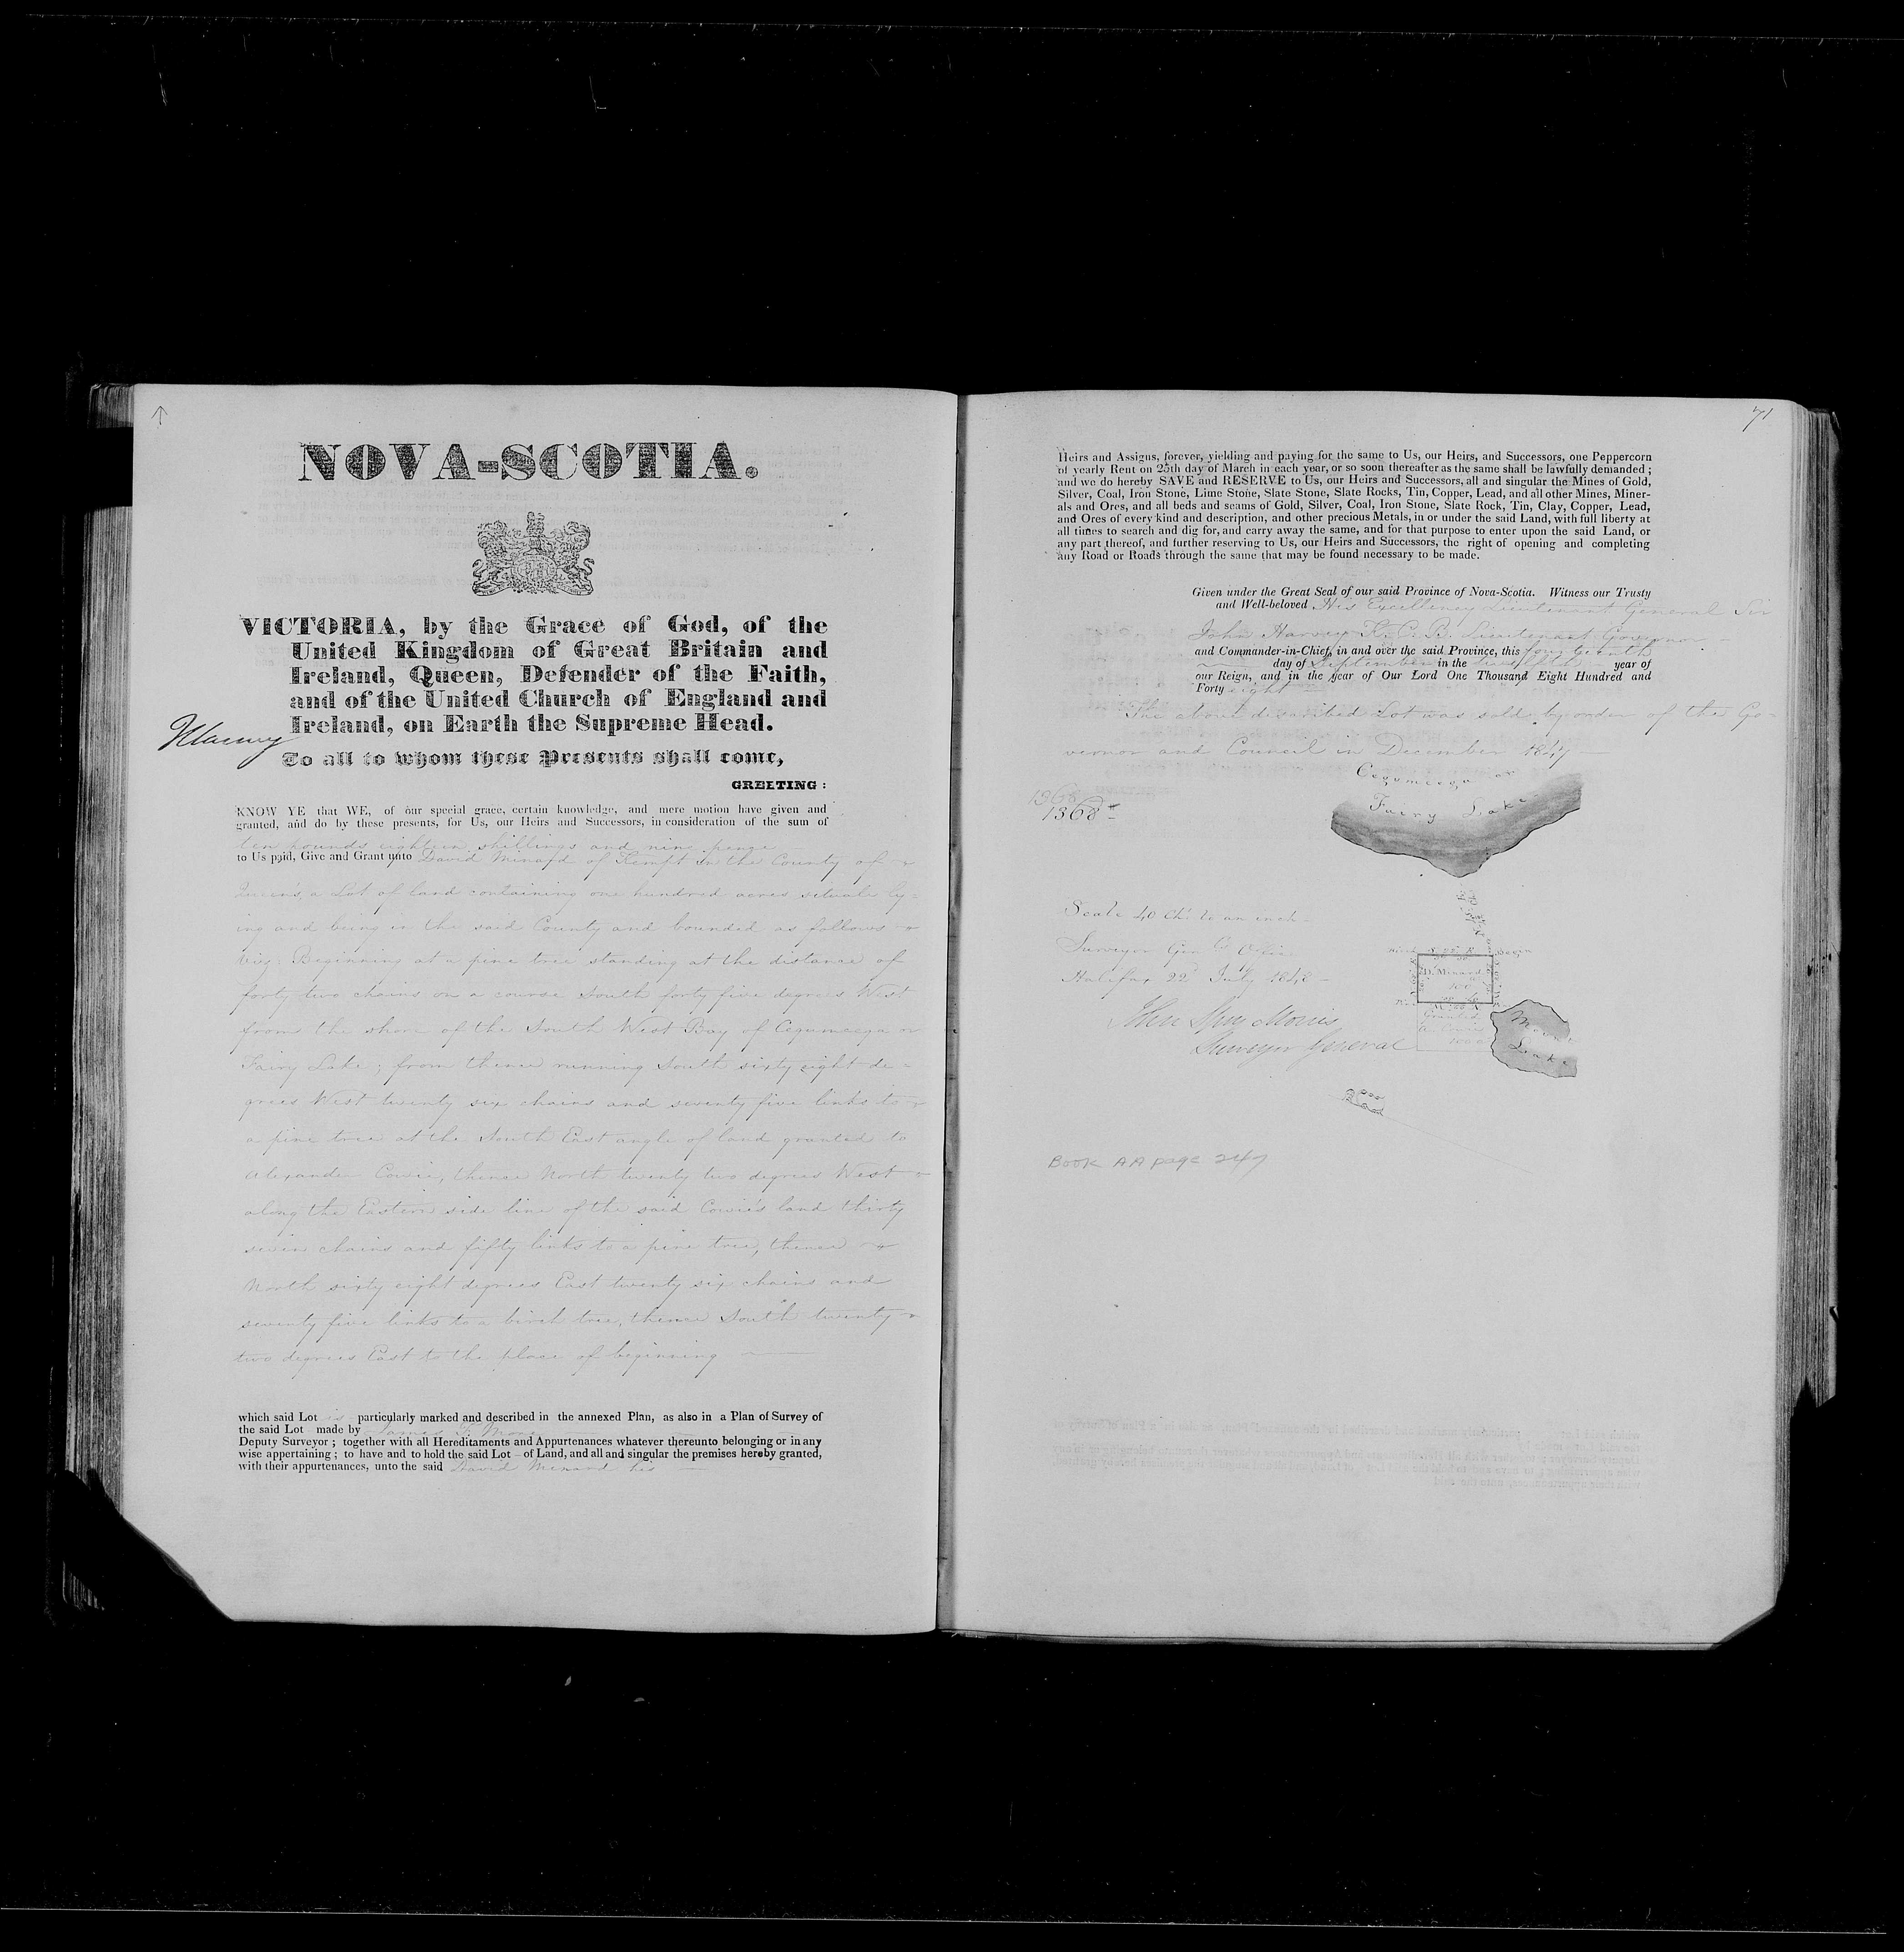 NOVA-SCOTIA.
VICTORIA, by the Grace of God, of the
United Kingdom of Great Britain and
Ireland, Queen, Defender of the Faith,
and of the United Church of England and
Ireland, on Earth the Supreme Head.
To all to whom these Presents shall come,
GREETING:
KNOW YE that WE, of our special grace, certain knowledge, and mere motion have given and
granted, and do by these presents, for Us, our Heirs and Successors, in consideration of the sum of
ten pounds eighteen shillings and nine pence
to Us paid, Give and Grant unto David Minard of Kempt in the County of
Queens, a Lot of land containing one hundred acres situate ly-
ing and being in the said County and bounded as follows
viz; Beginning at a pine tree standing at the distance of
forty two chains on a course South forty five degrees West
from the shore of the South West Bay of Cegumcega or
Fairy Lake; from thence running South sixty eight de-
grees West twenty six chains and seventy five links to
a pine tree at the South East angle of land granted to
Alexander Cowie, thence North twenty two degrees West
along the Eastern side line of the said Cowie's land thirty
seven chains and fifty links to a pine tree, thence
North sixty eight degrees East twenty six chains and
seventy five links to a birch tree, thence South twenty
two degrees East to the place of beginning
which said Lot is particularly marked and described in the annexed Plan, as also in a Plan of Survey of
the said Lot made by James F. More
Deputy Surveyor; together with all Hereditaments and Appurtenances whatever thereunto belonging or in any
wise appertaining; to have and to hold the said Lot of Land, and all and singular the premises hereby granted,
with their appurtenances, unto the said David Minard his
71
Heirs and Assigns, forever, yielding and paying for the same to Us, our Heirs, and Successors, one Peppercorn
of yearly Rent on 25th day of March in each year, or so soon thereafter as the same shall be lawfully demanded;
and we do hereby SAVE and RESERVE to Us, our Heirs and Successors, all and singular the Mines of Gold,
Silver, Coal, Iron Stone, Lime Stone, Slate Stone, Slate Rocks, Tin, Copper, Lead, and all other Mines, Miner-
als and Ores, and all beds and seams of Gold, Silver, Coal, Iron Stone, Slate Rock, Tin, Clay, Copper, Lead,
and Ores of every kind and description, and other precious Metals, in or under the said Land, with full liberty at
all times to search and dig for, and carry away the same, and for that purpose to enter upon the said Land, or
any part thereof, and further reserving to Us, our Heirs and Successors, the right of opening and completing
any Road or Roads through the same that may be found necessary to be made.
Given under the Great Seal of our said Province of Nova-Scotia. Witness our Trusty
and Well-beloved His Excellency Lieutenant General Sir
John Harvey K.C.B. Lieutenant Governor
and Commander-in-Chief, in and over the said Province, this fourteenth
day of September in the twelfth year of
our Reign, and in the year of Our Lord One Thousand Eight Hundred and
Forty eight
The above described Lot was sold by order of the Go-
vernor and Council in December 1847
Cegumcega or
Fairy Lake
1368
1368
Scale 40 Chs to an inch
Surveyor Genls Office
Halifax 22d July 1848
John Spry Morris
Surveyor General
D. Minard
100
Granted
1000
Lake
Road
BOOK AA page 247